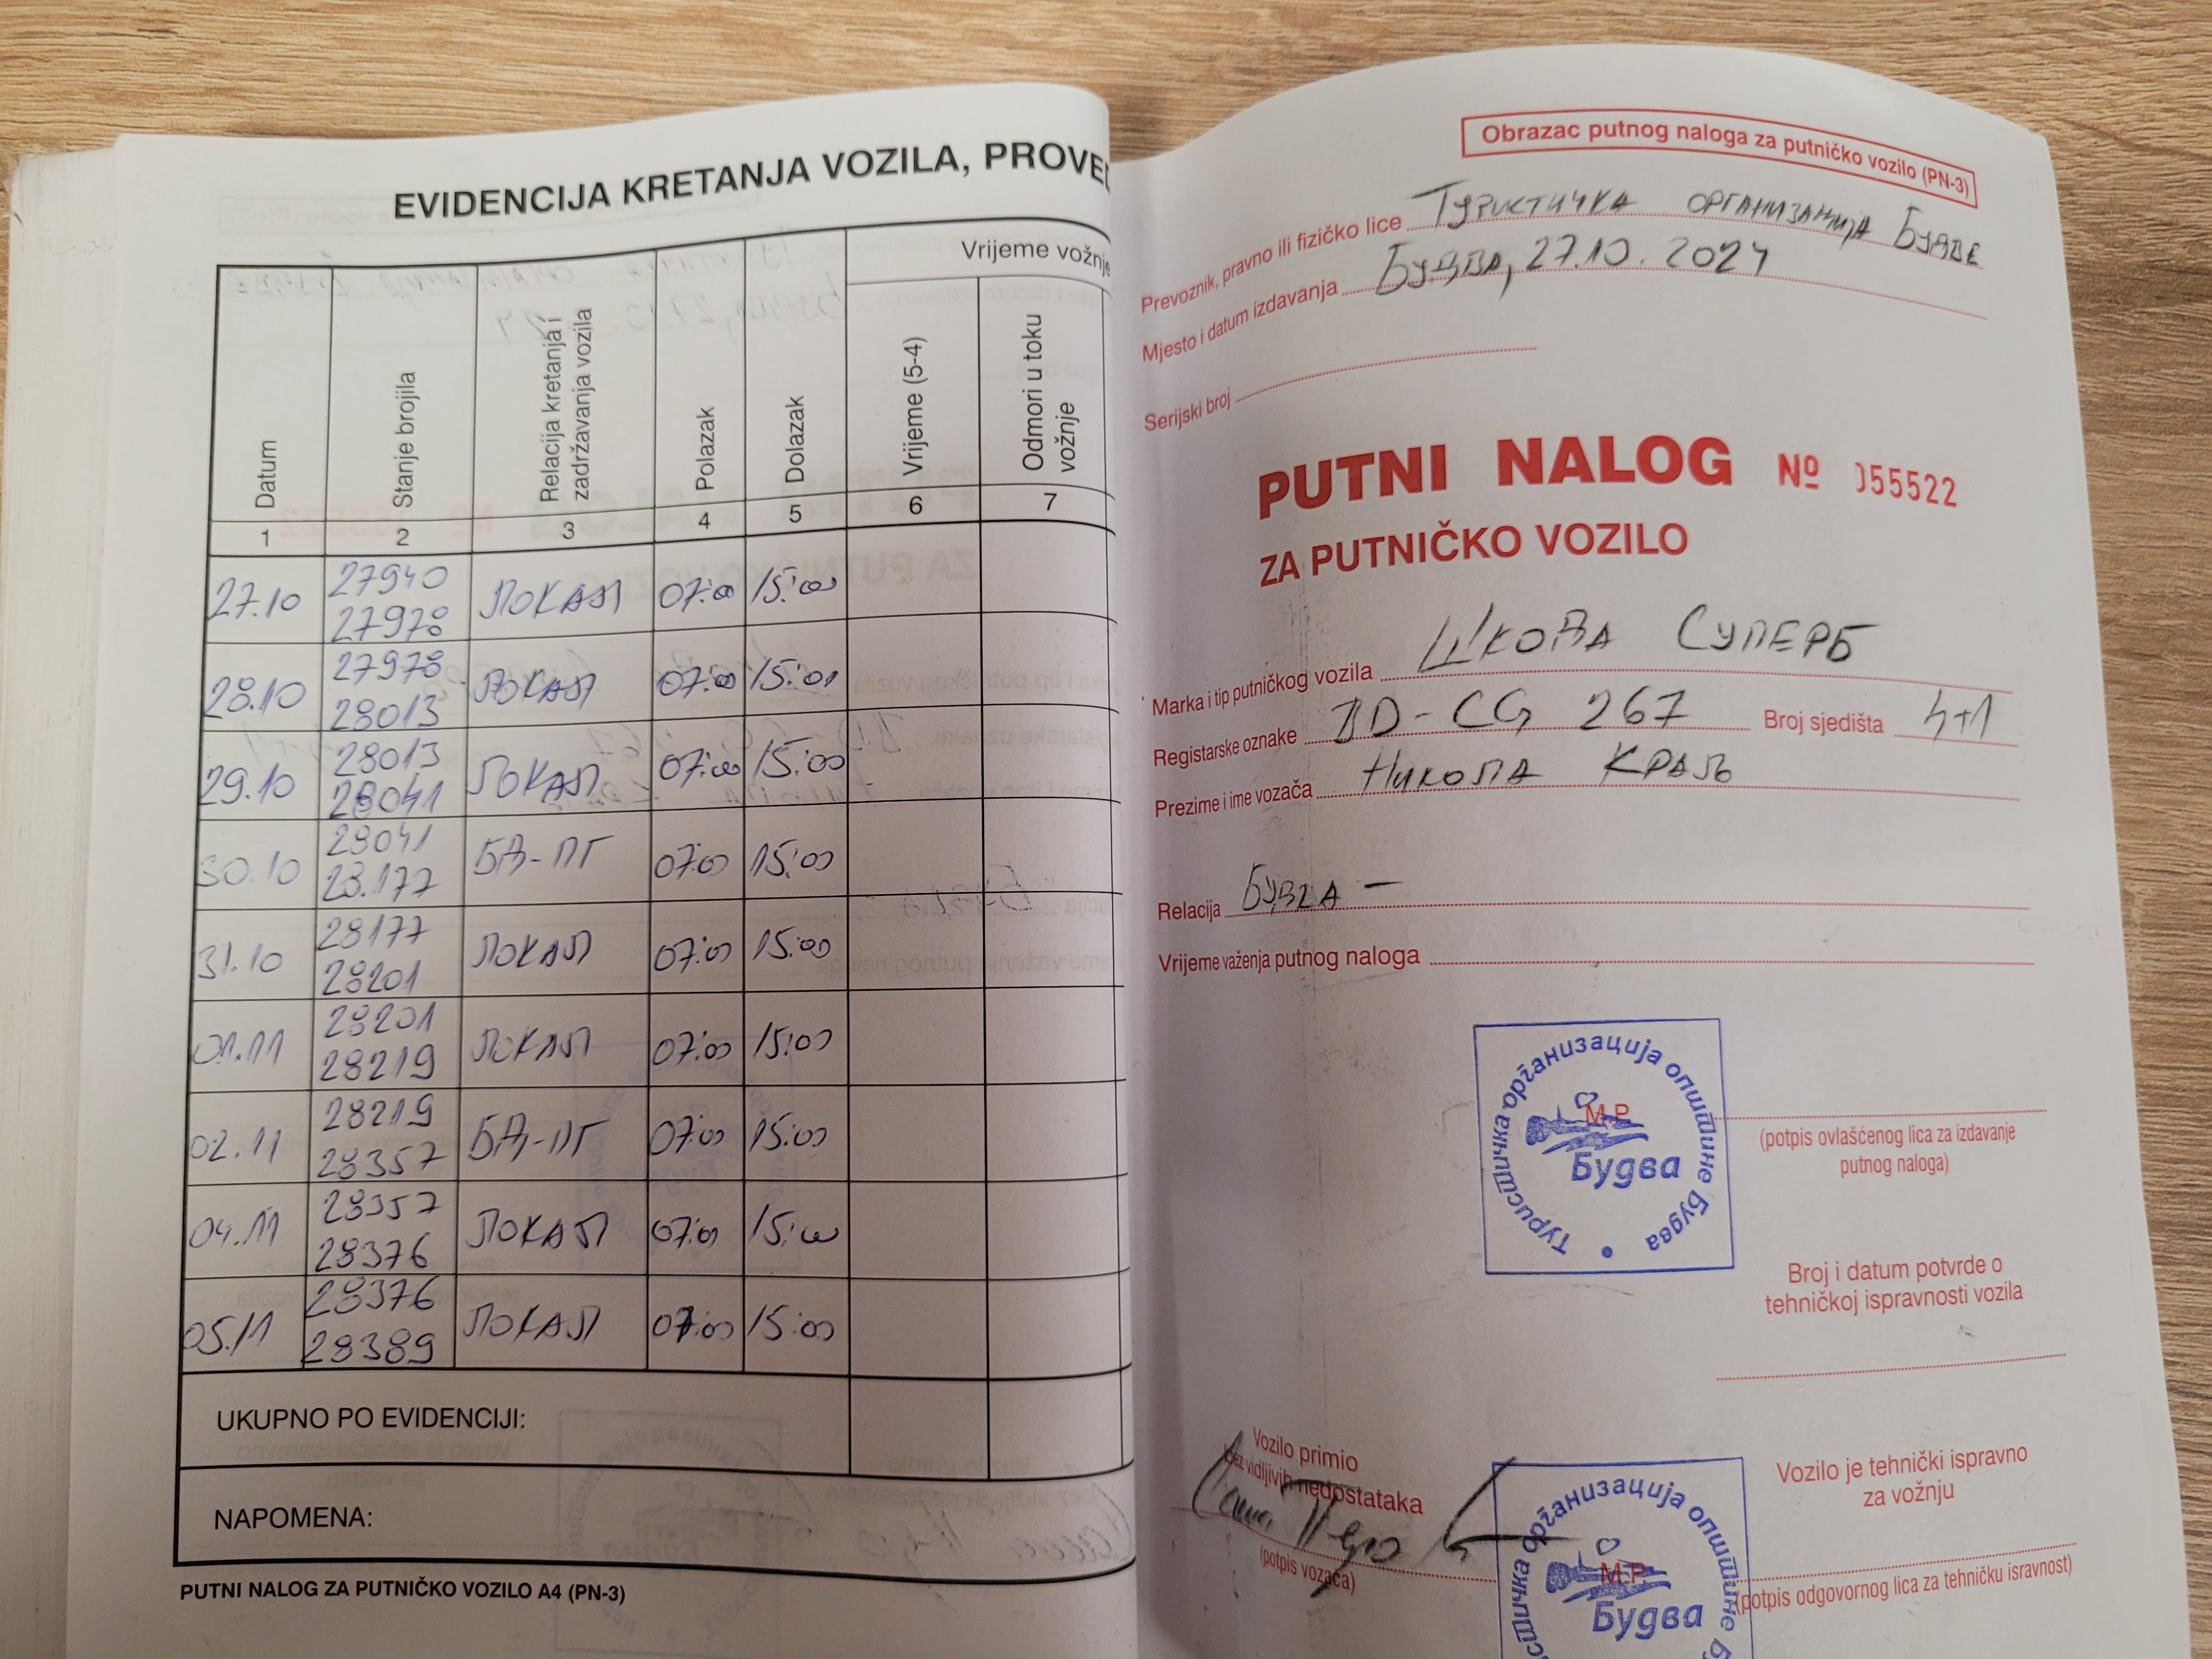 EVIDENCIJA KRETANJA VOZILA, PROVE
Vrijeme vožnje
Datum
Stanje brojila
Relacija kretanja i
zadržavanja vozila
Polazak
Dolazak
Vrijeme (5-4)
Odmori u toku
vožnje
1 2 3 4 5 6 7
27.10 27940 27978 ЛОКАЛ 07:00 15:00
28.10 27978 28013 ЛОКАЛ 07:00 15:00
29.10 28013 28041 ЛОКАЛ 07:00 15:00
30.10 28041 28.177 БД-ПГ 07:00 15:00
31.10 28177 28201 ЛОКАЛ 07:00 15:00
01.11 28201 28219 ЛОКАЛ 07:00 15:00
02.11 28219 28357 БД-ПГ 07:00 15:00
04.11 28357 28376 ЛОКАЛ 07:00 15:00
05.11 28376 28389 ЛОКАЛ 07:00 15:00
UKUPNO PO EVIDENCIJI:
NAPOMENA:
PUTNI NALOG ZA PUTNIČKO VOZILO A4 (PN-3)
Obrazac putnog naloga za putničko vozilo (PN-3)
Prevoznik, pravno ili fizičko lice Туристичка организација Будве
Mjesto i datum izdavanja Будва, 27.10.2024
Serijski broj
PUTNI NALOG Nº 055522
ZA PUTNIČKO VOZILO
Marka i tip putničkog vozila Шкода Суперб
Registarske oznake BD-CG 267 Broj sjedišta 4+1
Prezime i ime vozača Никола Краљ
Relacija Будва –
Vrijeme važenja putnog naloga
Туристичка организација општине Будва
М.Р.
Будва
(potpis ovlašćenog lica za izdavanje
putnog naloga)
Broj i datum potvrde o
tehničkoj ispravnosti vozila
Vozilo primio
bez vidljivih nedostataka
(potpis vozača)
Vozilo je tehnički ispravno
za vožnju
Туристичка организација општине Б
М.Р.
Будва
(potpis odgovornog lica za tehničku isravnost)